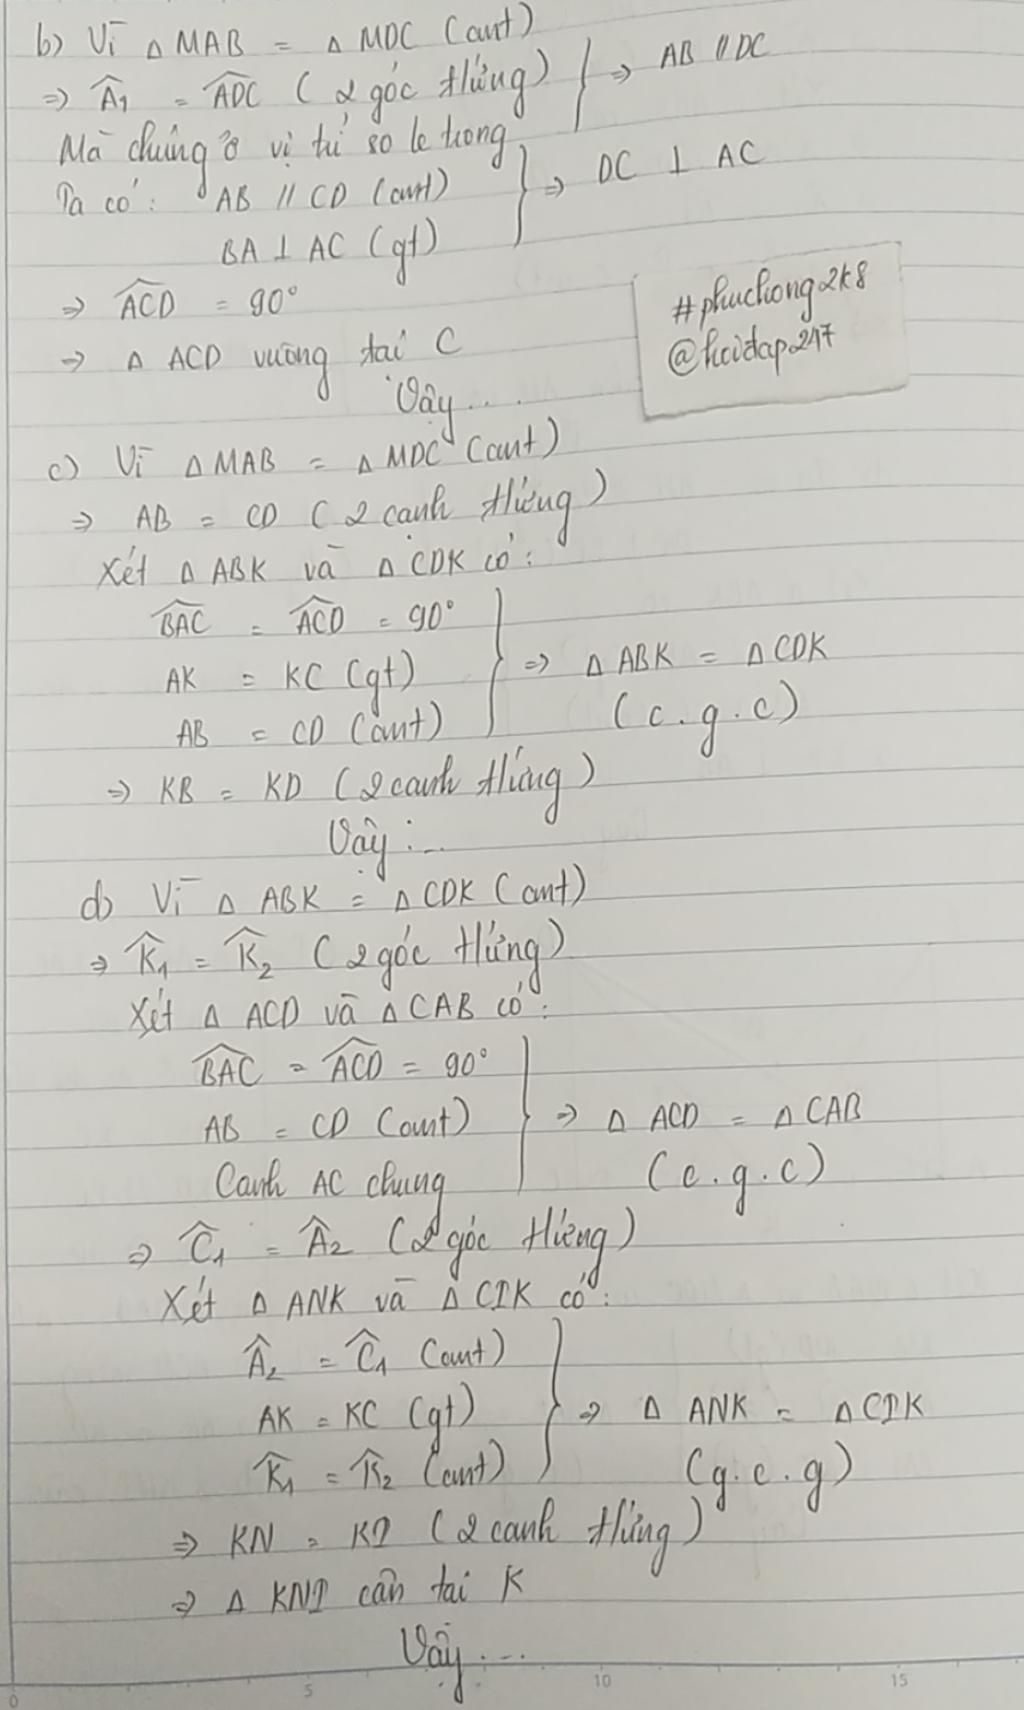 b) Vì Δ MAB = Δ MDC (cmt)
⇒ Â₁ = ADC ( 2 góc tứng ) ⇒ AB // DC
Mà chúng ở vị trí so le trong
Ta có : AB // CD (cmt) ⇒ DC ⊥ AC
BA ⊥ AC (gt)
⇒ ACD = 90°
⇒ Δ ACD vuông tại C
Vậy ...
#phuchong2k8
@hoidap247
c) Vì Δ MAB = Δ MDC (cmt)
⇒ AB = CD ( 2 cạnh tứng )
Xét Δ ABK và Δ CDK có :
BAC = ACD = 90°
AK = KC (gt) ⇒ Δ ABK = Δ CDK
AB = CD (cmt) ( c . g . c )
⇒ KB = KD ( 2 cạnh tứng )
Vậy : ...
d) Vì Δ ABK = Δ CDK (cmt)
⇒ K̂₁ = K̂₂ ( 2 góc tứng )
Xét Δ ACD và Δ CAB có :
BAC = ACD = 90°
AB = CD (cmt) ⇒ Δ ACD = Δ CAB
Cạnh AC chung ( c . g . c )
⇒ Ĉ₁ = Â₂ ( 2 góc tứng )
Xét Δ ANK và Δ CIK có :
Â₂ = Ĉ₁ (cmt)
AK = KC (gt) ⇒ Δ ANK = Δ CIK
K̂₁ = K̂₂ (cmt) ( g . c . g )
⇒ KN = KI ( 2 cạnh tứng )
⇒ Δ KNI cân tại K
Vậy ...
0 5 10 15